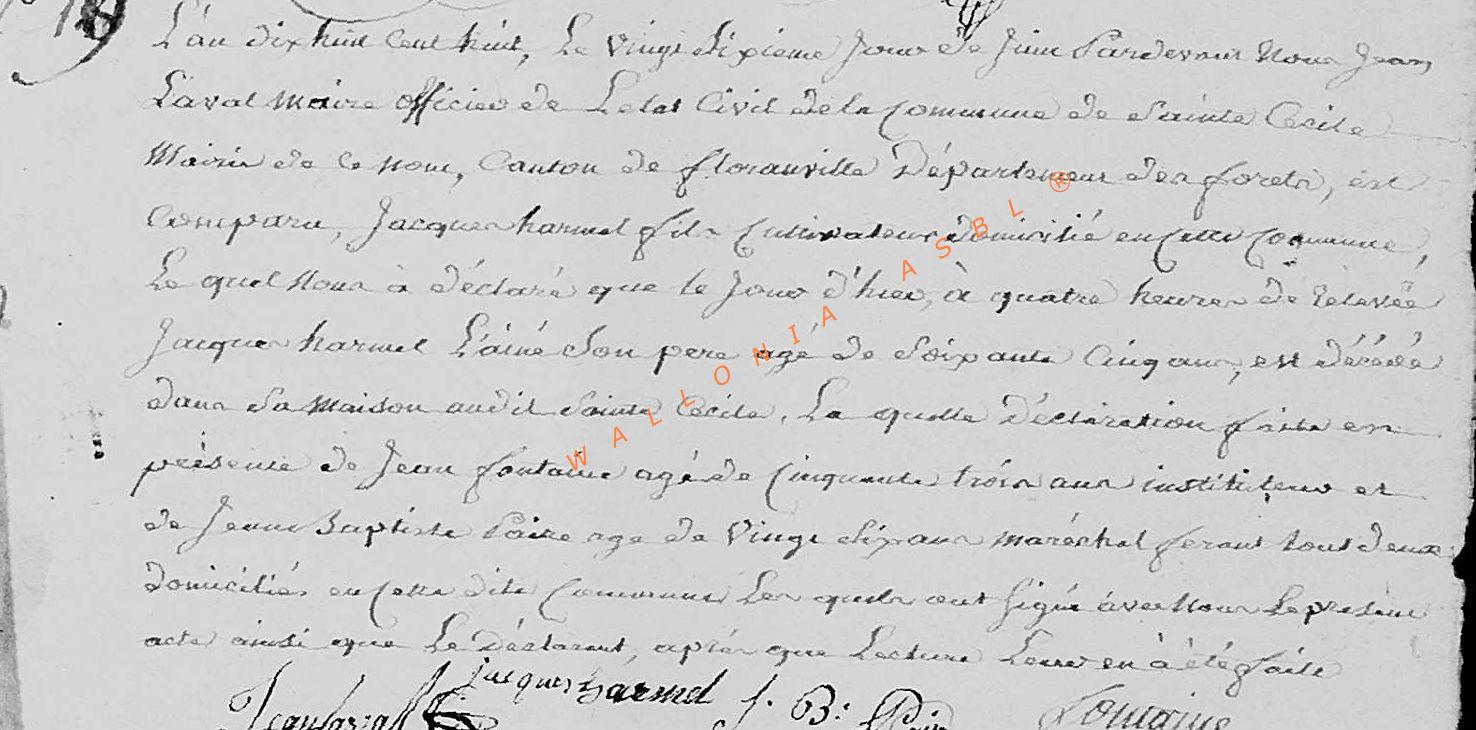 L'an dix huit cent huit, Le vingt sixieme Jour de Juin Pardevant Nous Jean
Laval Maire officier de Letat Civil de la Commune de Sainte Cecile
Mairie de ce nom, Canton de floranville Département des forets, est
Comparu, Jacques harmel fils Cultivateur domicilié en Cette Commune,
Le quel Nous à déclaré que le Jour d'hier, à quatre heures de relevée
Jacques harmel L'ainé Son pere agé de Soixante Cinq ans, est décédé
dans Sa Maison audit Sainte Cecile. La quelle Déclaration faite en
présence de Jean fontaine agé de Cinquante trois ans instituteur et
de Jean Baptiste age de Vingt Six ans maréchal ferant tout deux
domiciliés en Cette dite Commune Les quels ont Signé avec Nous Le present
acte ainsi que Le Déclarant, après que Lecture Leur en à été faite
Jean Laval jacques harmel J. B: fontaine
WALLONIA ASBL ®